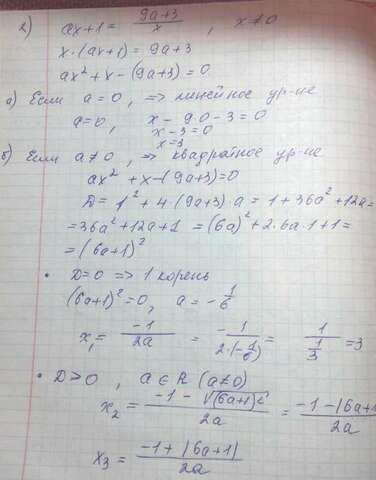 2) ax+1 = (9a+3)/x , x≠0
x·(ax+1) = 9a+3
ax²+x-(9a+3)=0
а) Если a=0, => линейное ур-ие
a=0, x-9·0-3=0
x-3=0
x=3
б) Если a≠0, => квадратное ур-ие
ax²+x-(9a+3)=0
D=1²+4·(9a+3)·a=1+36a²+12a=
=36a²+12a+1=(6a)²+2·6a·1+1=
=(6a+1)²
• D=0 => 1 корень
(6a+1)²=0, a=-1/6
x₁= -1/2a = -1/(2·(-1/6)) = 1/(1/3) =3
• D>0, a∈R (a≠0)
x₂= (-1-√(6a+1)²)/2a = (-1-|6a+1|)/2a
x₃= (-1+|6a+1|)/2a